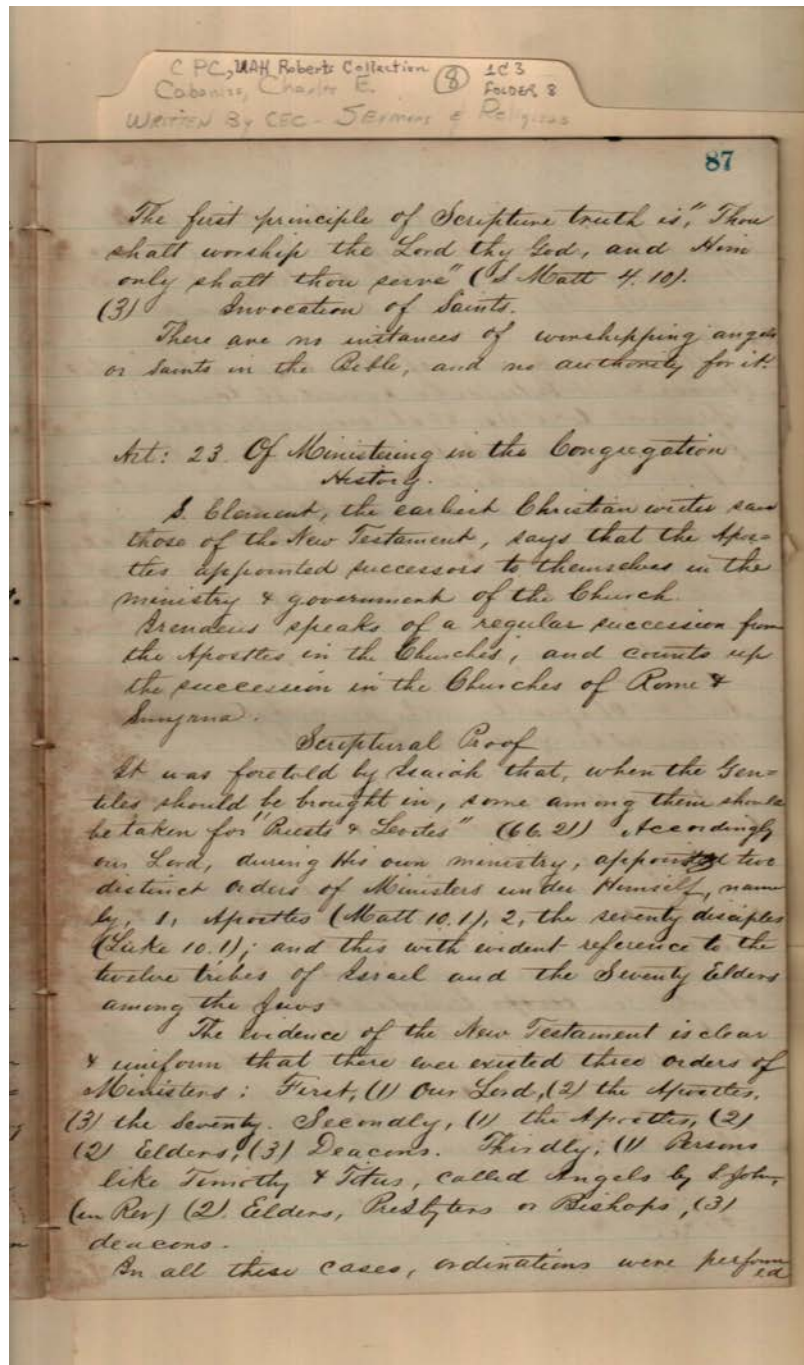 C PC, UAH Roberts Collection (8) 1C3
Cabaniss, Charles E. FOLDER 8
WRITTEN By CEC - SERMONS & Religious
87
The first principle of Scripture truth is, "Thou
shalt worship the Lord thy God, and Him
only shalt thou serve" (S Matt 4. 10).
(3) Invocation of Saints.
There are no instances of worshipping angels
or Saints in the Bible, and no authority for it.
Art: 23. Of Ministering in the Congregation
History.
S. Clement, the earliest Christian writer save
those of the New Testament, says that the Apos=
tles appointed successors to themselves in the
ministry & government of the Church.
Irendeus speaks of a regular succession from
the Apostles in the Churches, and counts up
the succession in the Churches of Rome &
Smyrna.
Scriptural Proof
It was foretold by Isaiah that, when the Gen=
tiles should be brought in, some among them should
be taken for "Priests & Levites" (66. 21) Accordingly
our Lord, during His own ministry, appointed two
distinct orders of Ministers under Himself, name
ly, 1, Apostles (Matt 10. 1), 2, the seventy disciples
(Luke 10. 1); and this with evident reference to the
twelve tribes of Israel and the Seventy Elders
among the Jews
The evidence of the New Testament is clear
& uniform that there ever existed three orders of
Ministers: First, (1) Our Lord, (2) the Apostles,
(3) the Seventy. Secondly, (1) the Apostles, (2)
(2) Elders, (3) Deacons. Thirdly; (1) Persons
like Timothy & Titus, called Angels by S. John,
(in Rev) (2). Elders, Presbyters or Bishops, (3)
deacons.
In all these cases, ordinations were perform
ed